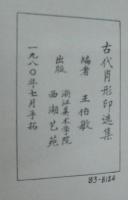 古代肖形印选集
编者 王伯敏
出版 浙江美术学院
西湖艺苑
一九八〇年七月手拓
83-8124